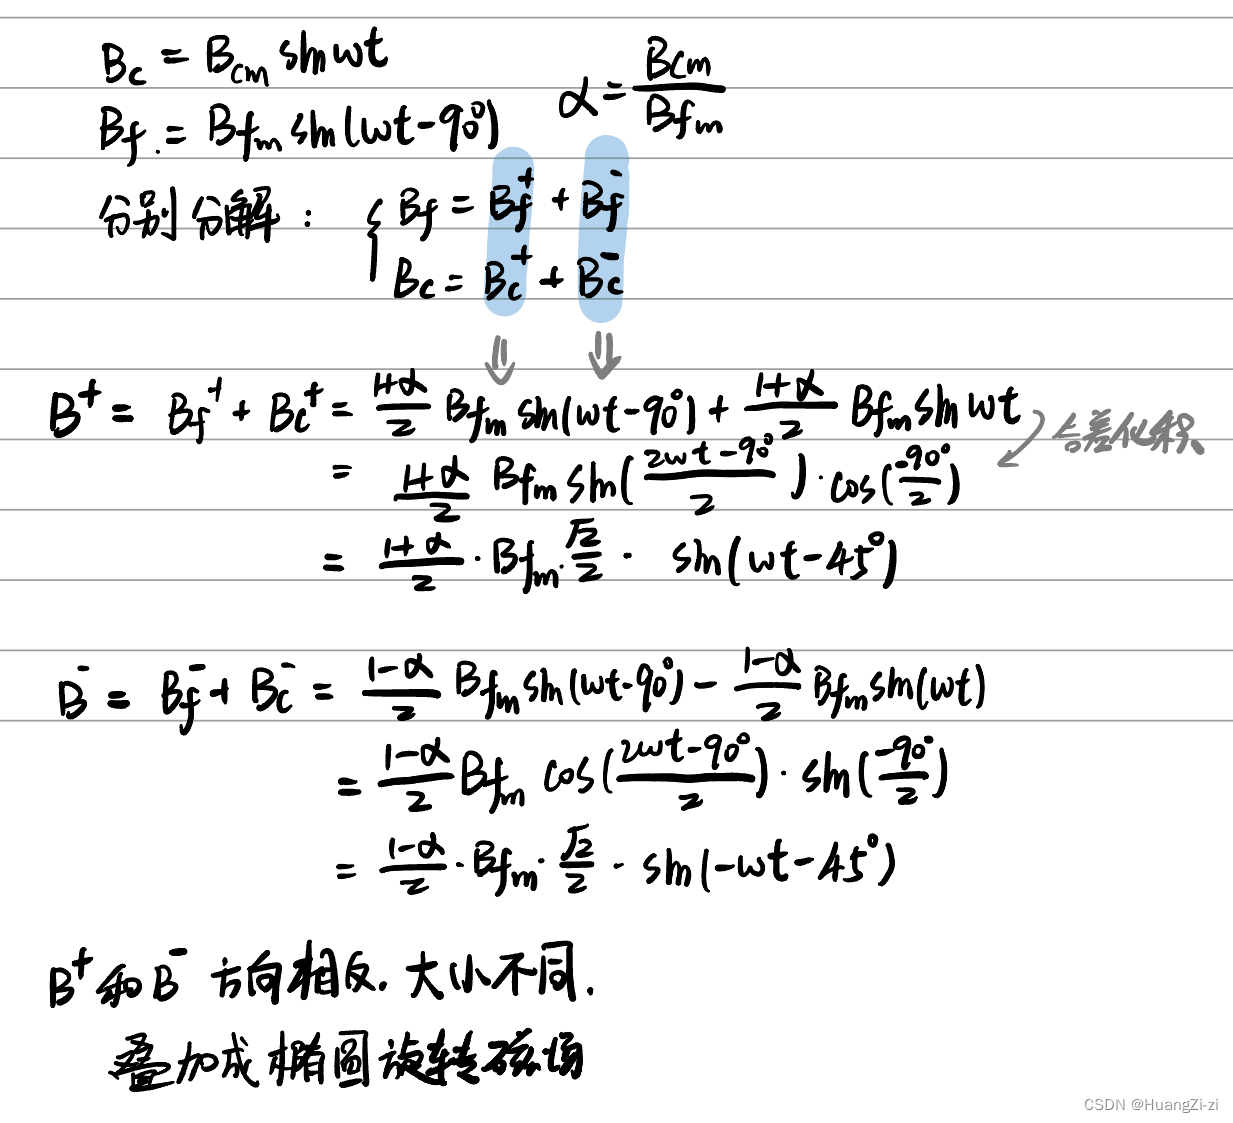 Bc = Bcm sinwt
Bf = Bfm sin(wt-90°)
α = Bcm/Bfm
分别分解： { Bf = Bf⁺ + Bf⁻
Bc = Bc⁺ + Bc⁻
⇓ ⇓
B⁺ = Bf⁺ + Bc⁺ = (1+α)/2 Bfm sin(wt-90°) + (1+α)/2 Bfm sin wt
合差化积
= (1+α)/2 Bfm sin((2wt-90°)/2) · cos(-90°/2)
= (1+α)/2 · Bfm · √2/2 · sin(wt-45°)
B⁻ = Bf⁻ + Bc⁻ = (1-α)/2 Bfm sin(wt-90°) - (1-α)/2 Bfm sin(wt)
= (1-α)/2 Bfm cos((2wt-90°)/2) · sin(-90°/2)
= (1-α)/2 · Bfm · √2/2 · sin(-wt-45°)
B⁺和B⁻ 方向相反. 大小不同.
叠加成椭圆旋转磁场
CSDN @HuangZi-zi